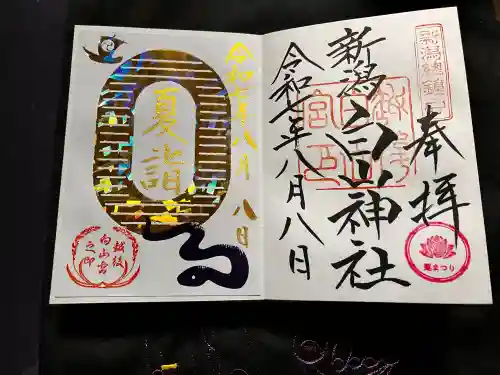 奉拝
新潟総鎮守
新潟白山神社
令和七年八月八日
蓮まつり
令和七年八月八日
夏詣
越後
白山宮
之印